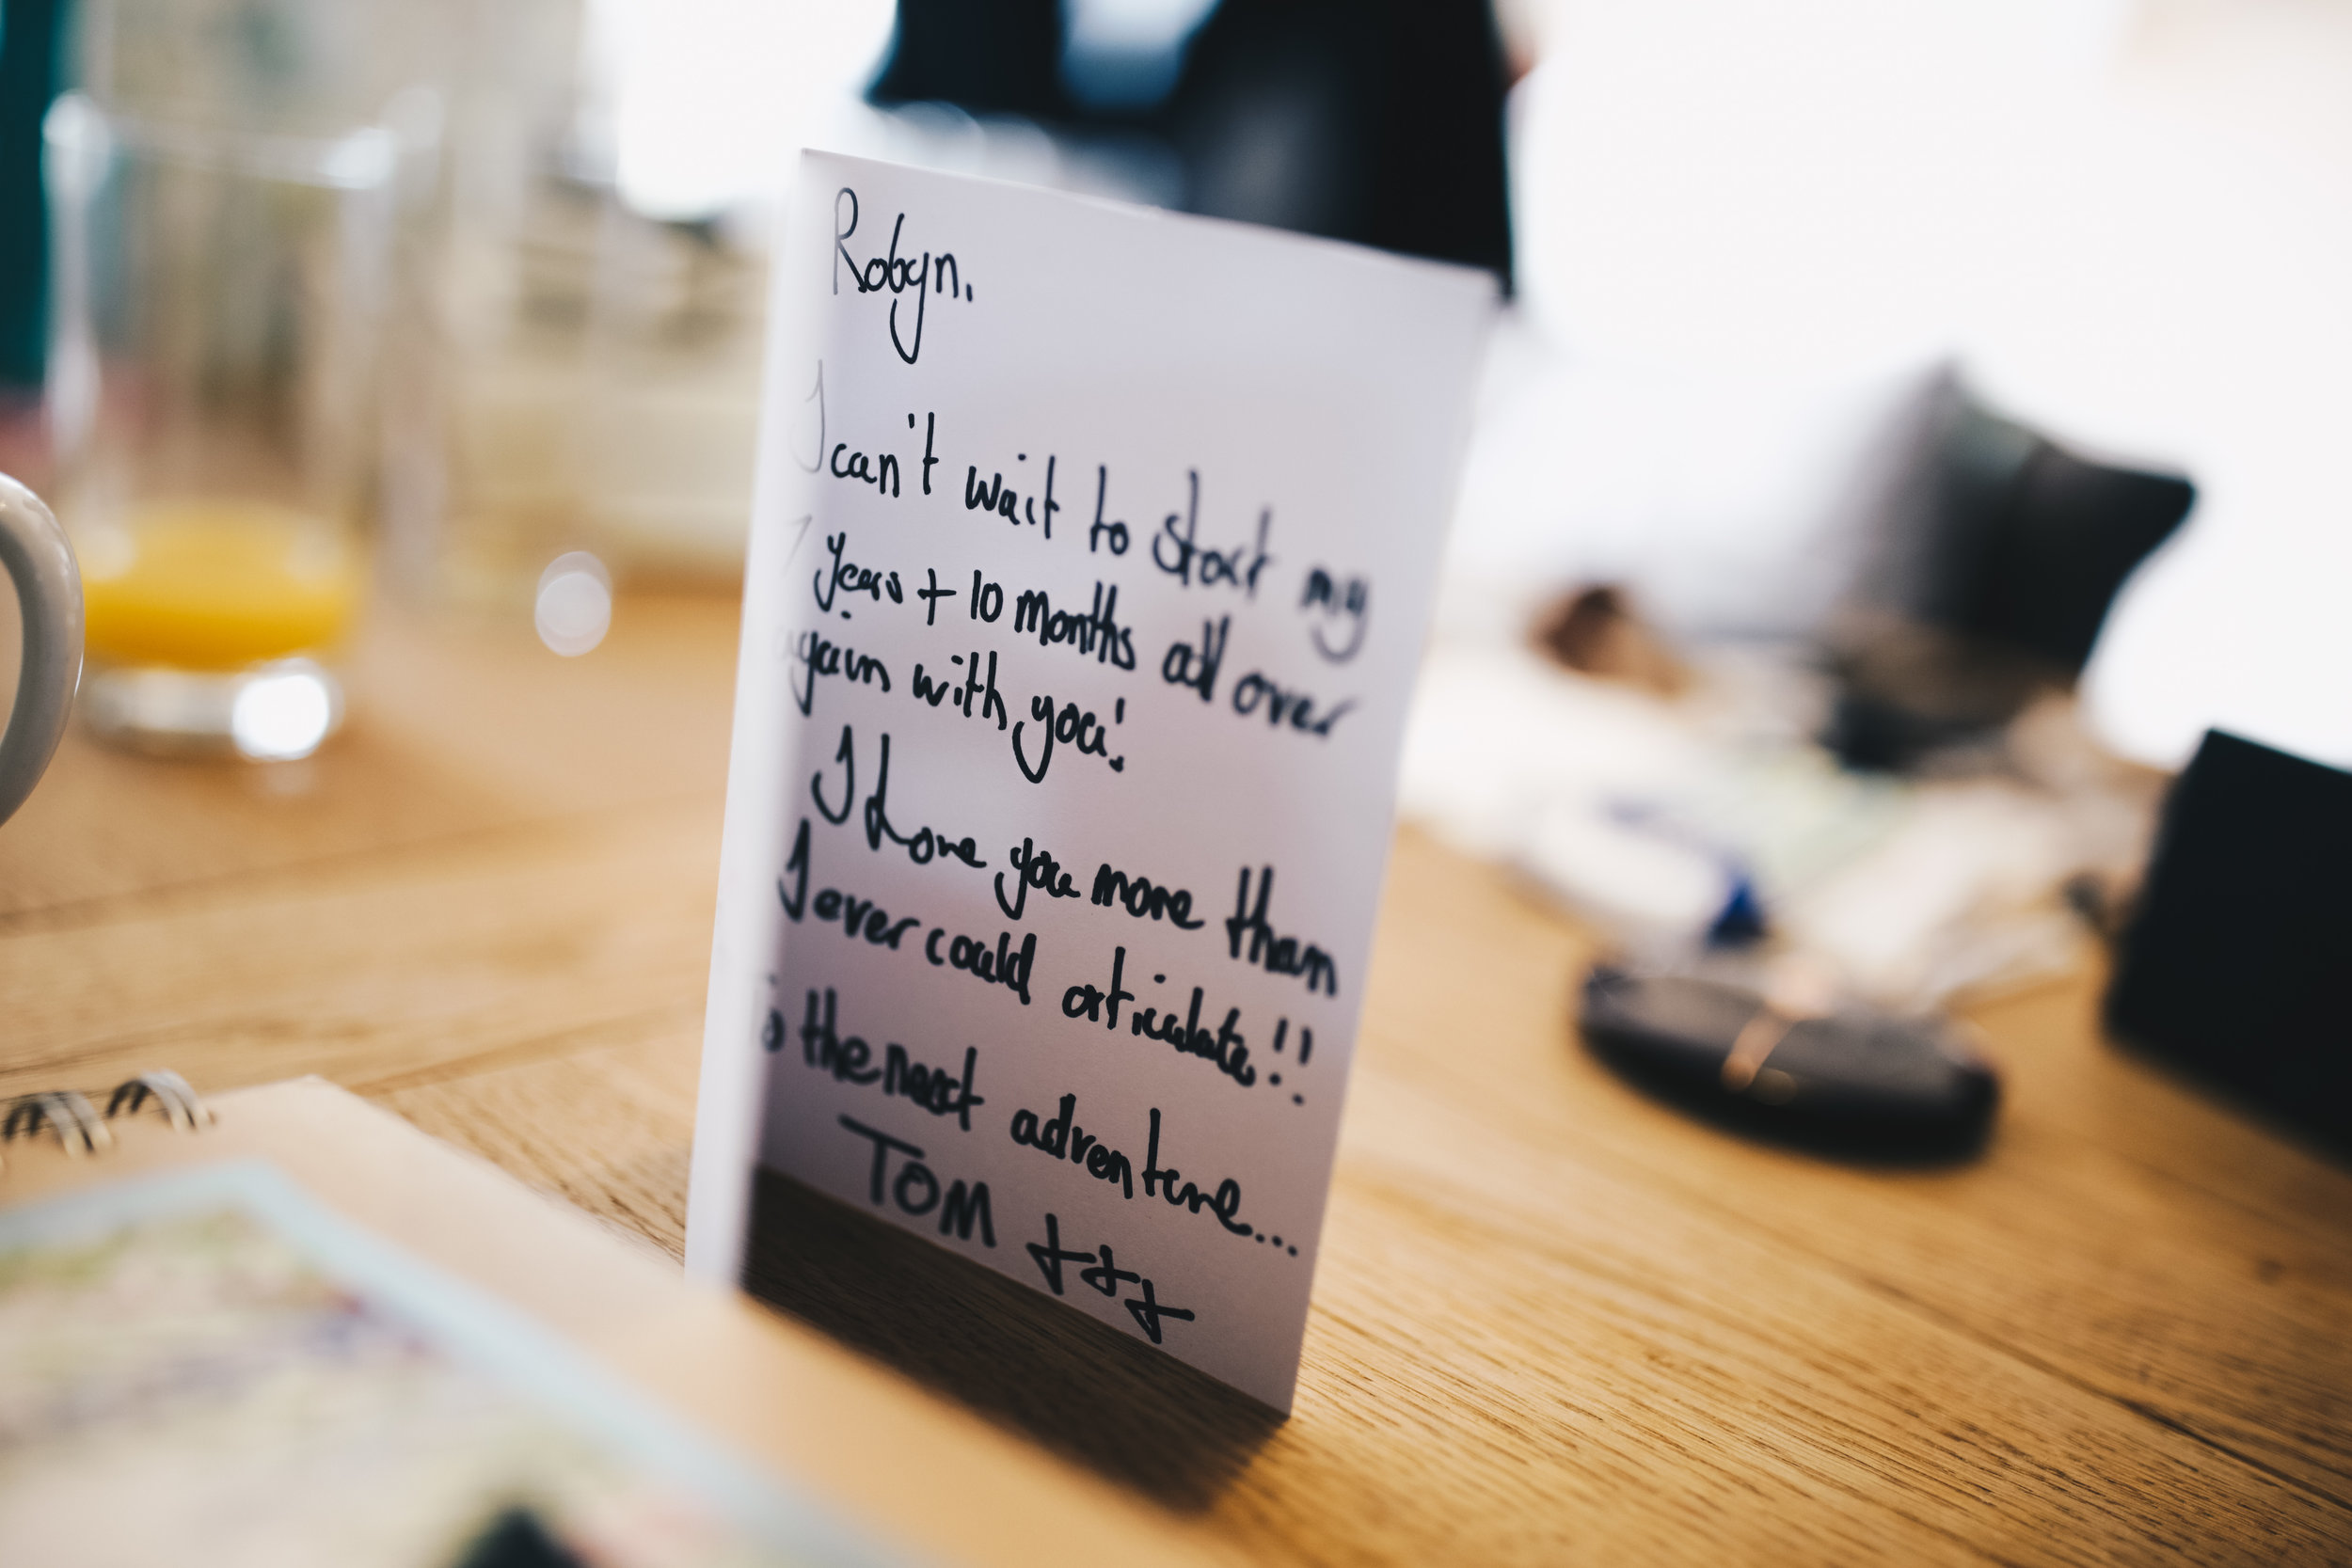 Robyn.
I can't wait to start my
7 years + 10 months all over
again with you!
I Love you more than
I ever could articulate!!
to the next adventure...
TOM xxx